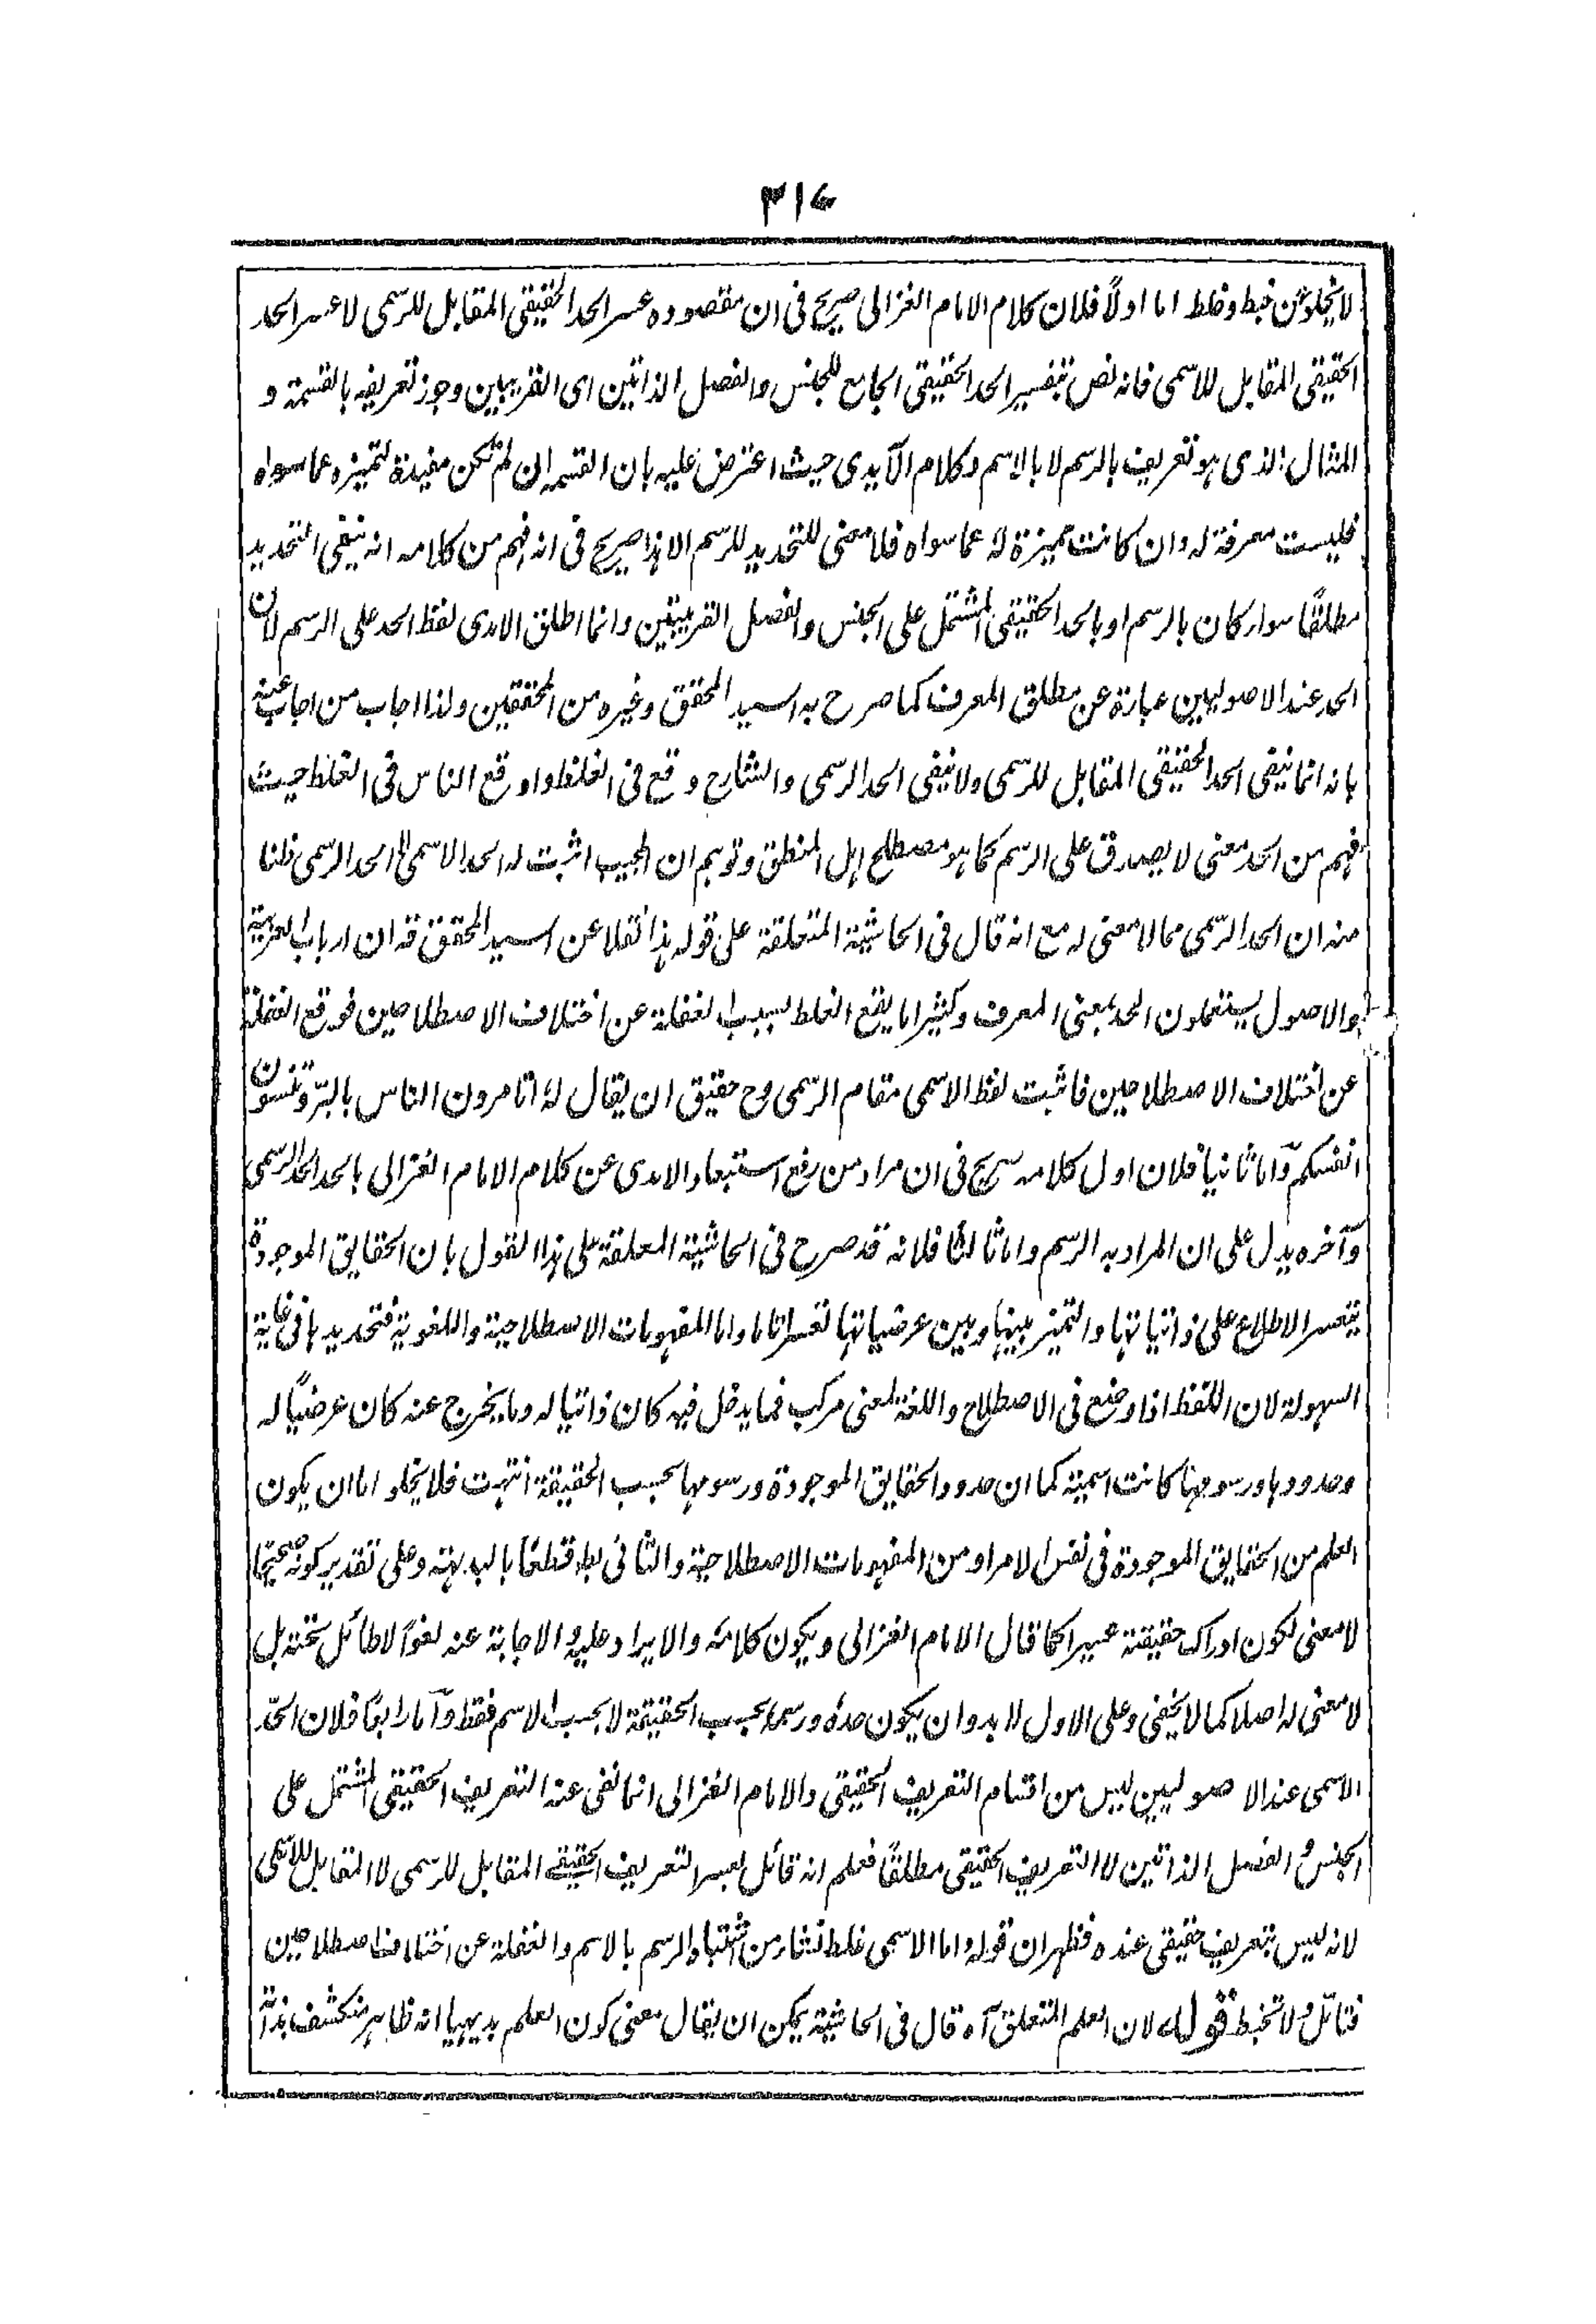 ٣١٧
لا يخلو عن خبط وخلط اما اولًا فلان كلام الامام الغزالى صريح فى ان مقصوده عسر الحد الحقيقى المقابل للرسمى لا عسر الحد
الحقيقى المقابل للاسمى فانه نص بتفسير الحد الحقيقى الجامع للجنس والفصل الذاتين اى القريبين وجوز تعريفه بالقسمة و
المثال الذى هو تعريف بالرسم لا بالاسم وكلام الآمدى حيث اعترض عليه بان القسمه ان لم تكن مفيدة لتميزه عما سواه
فليست معرفة له وان كانت مميزة له عما سواه فلا معنى للتحديد للرسم الا هذا صريح فى انه فهم من كلامه انه ينفى التحديد
مطلقًا سواء كان بالرسم او بالحد الحقيقى المشتمل على الجنس والفصل القريبين وانما اطلق الامدى لفظ الحد على الرسم لان
الحد عند الاصوليين عبارة عن مطلق المعرف كما صرح به السيد المحقق وغيره من المحققين ولذا اجاب من اجاب عنه
بانه انما ينفى الحد الحقيقى المقابل للرسمى ولا ينفى الحد الرسمى والشارح وقع فى الغلط واوقع الناس فى الغلط حيث
فهم من الحد معنى لا يصدق على الرسم كما هو مصطلح اهل المنطق وتوهم ان المجيب اثبت له الحد الاسمى لا الحد الرسمى ظنا
منه ان الحد الرسمى مما لا معنى له مع انه قال فى الحاشية المتعلقة على قوله هذا نقلا عن السيد المحقق قه ان ارباب العربية
والاصول يستعملون الحد بمعنى المعرف وكثيرا ما يقع الغلط بسبب الغفلة عن اختلاف الاصطلاحين فوقع الغفلة
عن اختلاف الاصطلاحين فاثبت لفظ الاسمى مقام الرسمى وح حقيق ان يقال له اتامرون الناس بالبر وتنسون
انفسكم واما ثانيا فلان اول كلامه صريح فى ان مراد من رفع استبعاد الامدى عن كلام الامام الغزالى بالحد الحد الرسمى
وآخره يدل على ان المراد به الرسم واما ثالثا فلانه قد صرح فى الحاشية المعلقة على هذا القول بان الحقايق الموجودة
يتعسر الاطلاع على ذاتياتها والتميز بينها وبين عرضياتها تعسرا تاما واما المفهومات الاصطلاحية واللغوية فتحديدها فى غاية
السهولة لان اللفظ اذا وضع فى الاصطلاح واللغة لمعنى مركب فما يدخل فيه كان ذاتيا له وما يخرج عنه كان عرضيًا له
وحدودها ورسومها كانت اسمية كما ان حدود الحقايق الموجودة ورسومها بحسب الحقيقة انتهت فلا يخلو اما ان يكون
العلم من الحقايق الموجودة فى نفس الامر او من المفهومات الاصطلاحية والثانى بط قطعًا بالبديهة وعلى تقدير كونه صحيحًا
لا معنى لكون ادراك حقيقته عسيرا كما قال الامام الغزالى ويكون كلامه والايراد عليه والاجابة عنه لغوًا لا طائل تحته بل
لا معنى له اصلا كما لا يخفى وعلى الاول لا بد وان يكون حده ورسمه بحسب الحقيقة لا بحسب الاسم فقط واما رابعًا فلان الحد
الاسمى عند الاصوليين ليس من اقسام التعريف الحقيقى والامام الغزالى انما نفى عنه التعريف الحقيقى المشتمل على
الجنس و الفصل الذاتين لا التعريف الحقيقى مطلقًا فعلم انه قائل بعسر التعريف الحقيقے المقابل للرسمى لا المقابل للاسمى
لانه ليس بتعريف حقيقى عنده فظهر ان قوله واما الاسمى غلط نشاء من اشتباه الرسم بالاسم والغفلة عن اختلاف اصطلاحين
فتامل ولا تخبط قوله لان العلم المتعلق آه قال فى الحاشية يمكن ان يقال معنى كون العلم بديهيا انه ظاهر منكشف بذاته